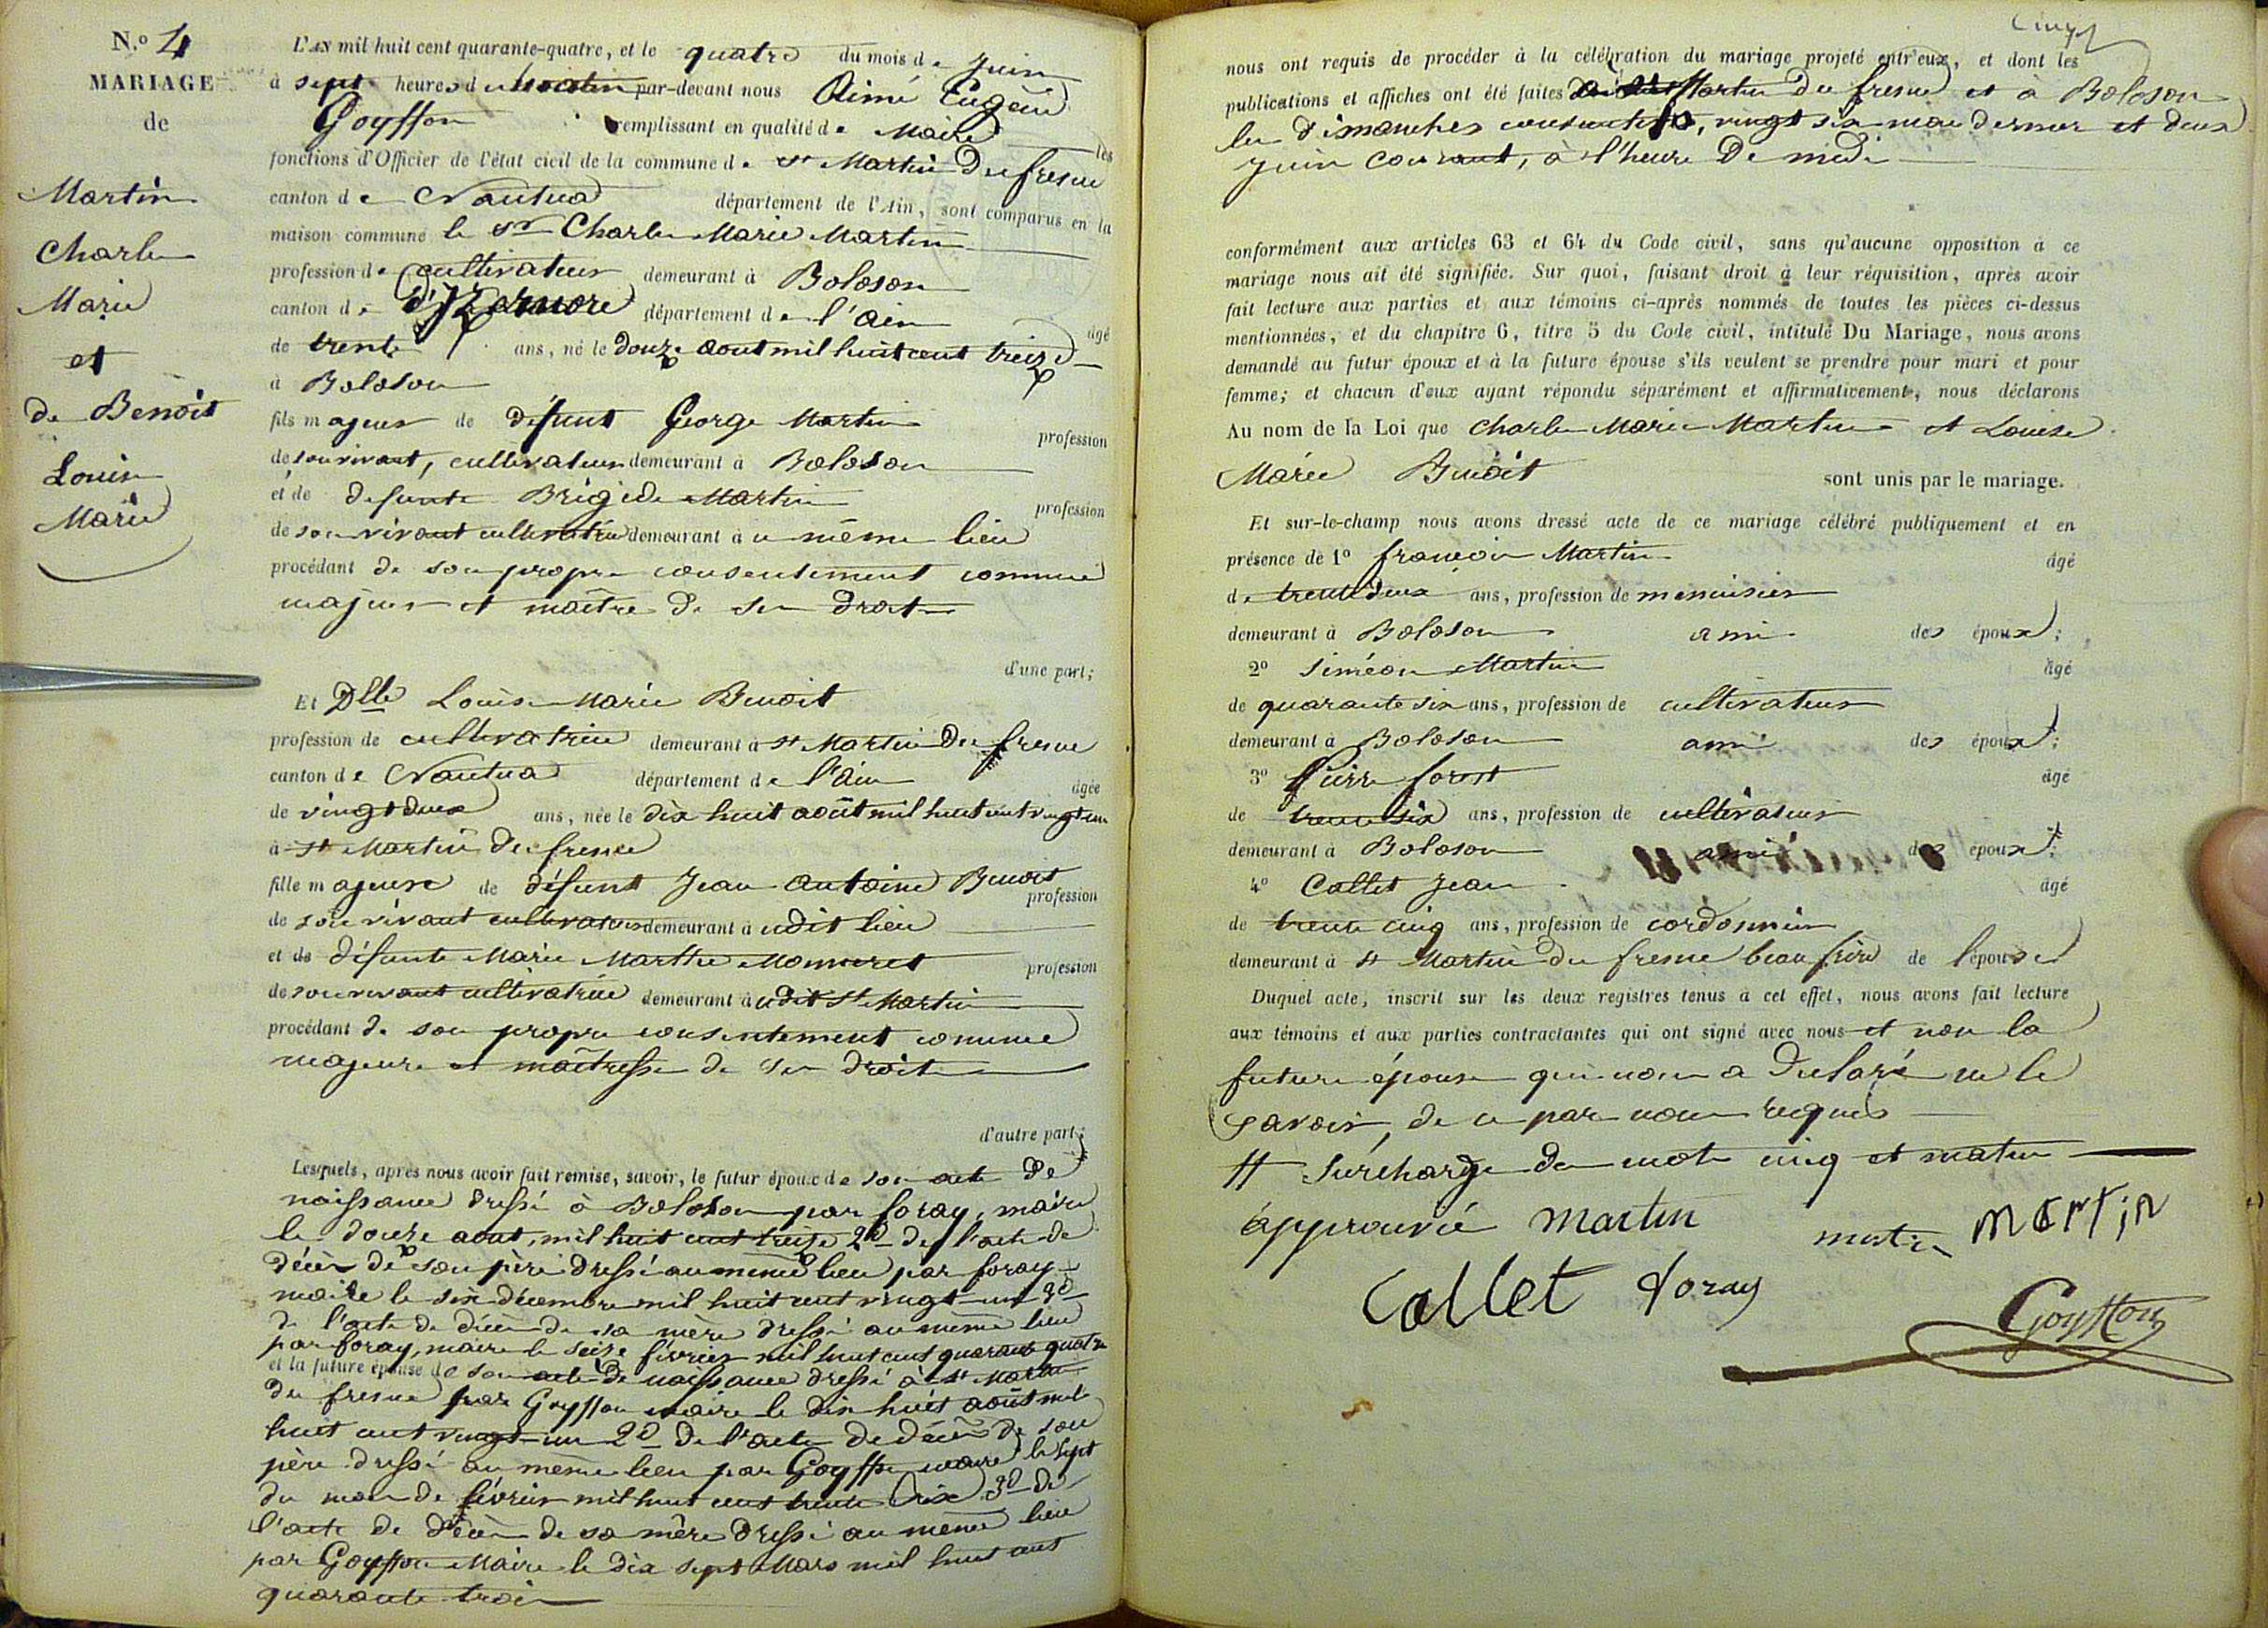 N.º 4
MARIAGE
de
Martin
Charles
Marie
et
de Benoit
Louise
Marie
L'AN mil huit cent quarante-quatre, et le quatre du mois de juin
à sept heures du matin par-devant nous Aimé Eugène
Goyffon remplissant en qualité de Maire les
fonctions d'Officier de l'état civil de la commune de St Martin Du fresne
canton de Nantua département de l'Ain, sont comparus en la
maison commune le Sr Charles Marie Martin
profession de cultivateur demeurant à Boloson
canton d'Izernore département de l'Ain âgé
de trente ans, né le douze aout mil huit cent treize
à Boloson
fils majeur de défunt George Martin profession
de son vivant, cultivateur demeurant à Boloson
et de defunte Brigide Martin profession
de son vivant cultivatrice demeurant au même lieu
procédant de son propre consentement comme
majeur et maître de ses droits
d'une part;
Et Dlle Louise Marie Benoit
profession de cultivatrice demeurant à St Martin Du fresne
canton de Nantua département de l'Ain âgée
de vingt deux ans, née le dix huit août mil huit cent vingt un
à St Martin Du fresne
fille majeure de défunt Jean Antoine Benoit profession
de son vivant cultivateur demeurant audit lieu
et de défunte Marie Marthe Monneret profession
de son vivant cultivatrice demeurant audit St Martin
procédant de son propre consentement comme
majeure et maîtresse de ses droits
d'autre part;
Lesquels, après nous avoir fait remise, savoir, le futur époux de son acte de
naissance dressé à Boloson par foray, maire
le douze aout, mil huit cent treize 2º de l'acte de
décès de son père dressé au même lieu par foray
maire le six décembre mil huit cent vingt un 3º
de l'acte de décès de sa mère dressé au même lieu
par foray, maire le seize février mil huit cent quarante quatre
et la future épouse de son acte de naissance dressé à St Martin
du fresne par Goyffon maire le dix huit août mil
huit cent vingt-un 2º de l'acte de décès de son
père dressé au même lieu par Goyffon maire le sept
du mois de février mil huit cent trente 3º de
l'acte de décès de sa mère dressé au même lieu
par Goyffon Maire le dix sept Mars mil huit cent
quarante trois
cinq
nous ont requis de procéder à la célébration du mariage projeté entr'eux, et dont les
publications et affiches ont été faites à St Martin du fresne et à Boloson
les dimanches consécutifs, vingt six mai dernier et deux
juin courant, à l'heure de midi
conformément aux articles 63 et 64 du Code civil, sans qu'aucune opposition à ce
mariage nous ait été signifiée. Sur quoi, faisant droit à leur réquisition, après avoir
fait lecture aux parties et aux témoins ci-après nommés de toutes les pièces ci-dessus
mentionnées, et du chapitre 6, titre 5 du Code civil, intitulé Du Mariage, nous avons
demandé au futur époux et à la future épouse s'ils veulent se prendre pour mari et pour
femme; et chacun d'eux ayant répondu séparément et affirmativement, nous déclarons
Au nom de la Loi que Charles Marie Martin et Louise
Marie Benoit sont unis par le mariage.
Et sur-le-champ nous avons dressé acte de ce mariage célébré publiquement et en
présence de 1º françois Martin âgé
de trente deux ans, profession de menuisier
demeurant à Boloson ami des époux;
2º Siméon Martin âgé
de quarante six ans, profession de cultivateur
demeurant à Boloson ami des époux;
3º Pierre forest âgé
de trente six ans, profession de cultivateur
demeurant à Boloson ami des époux;
4º Callet Jean âgé
de trente cinq ans, profession de cordonnier
demeurant à St Martin du fresne beau frère de l'épouse
Duquel acte, inscrit sur les deux registres tenus à cet effet, nous avons fait lecture
aux témoins et aux parties contractantes qui ont signé avec nous et non la
future épouse qui nous a déclaré ne le
savoir, de ce par nous requis
# Surcharge des mots cinq et matin
approuvée Martin martin MArTiN
Callet foray
Goyffon